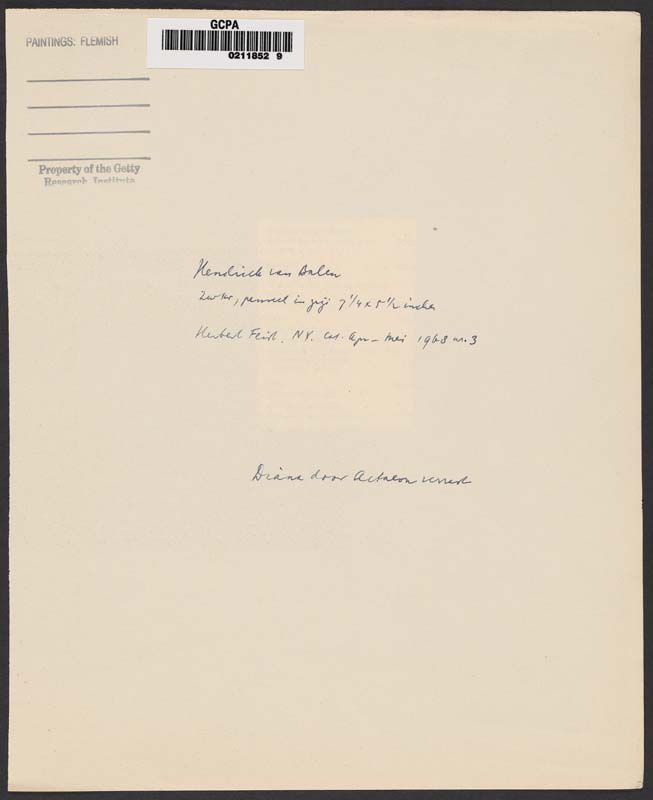 PAINTINGS: FLEMISH
GCPA
0211852 9
Property of the Getty
Research Institute
Hendrick van Balen
penseel in grijs 7 1/4 x 5 1/2 inches
Herbert Feist, NY. Cat. Apr - Mei 1968 nr. 3
Diana door Actaeon verrast